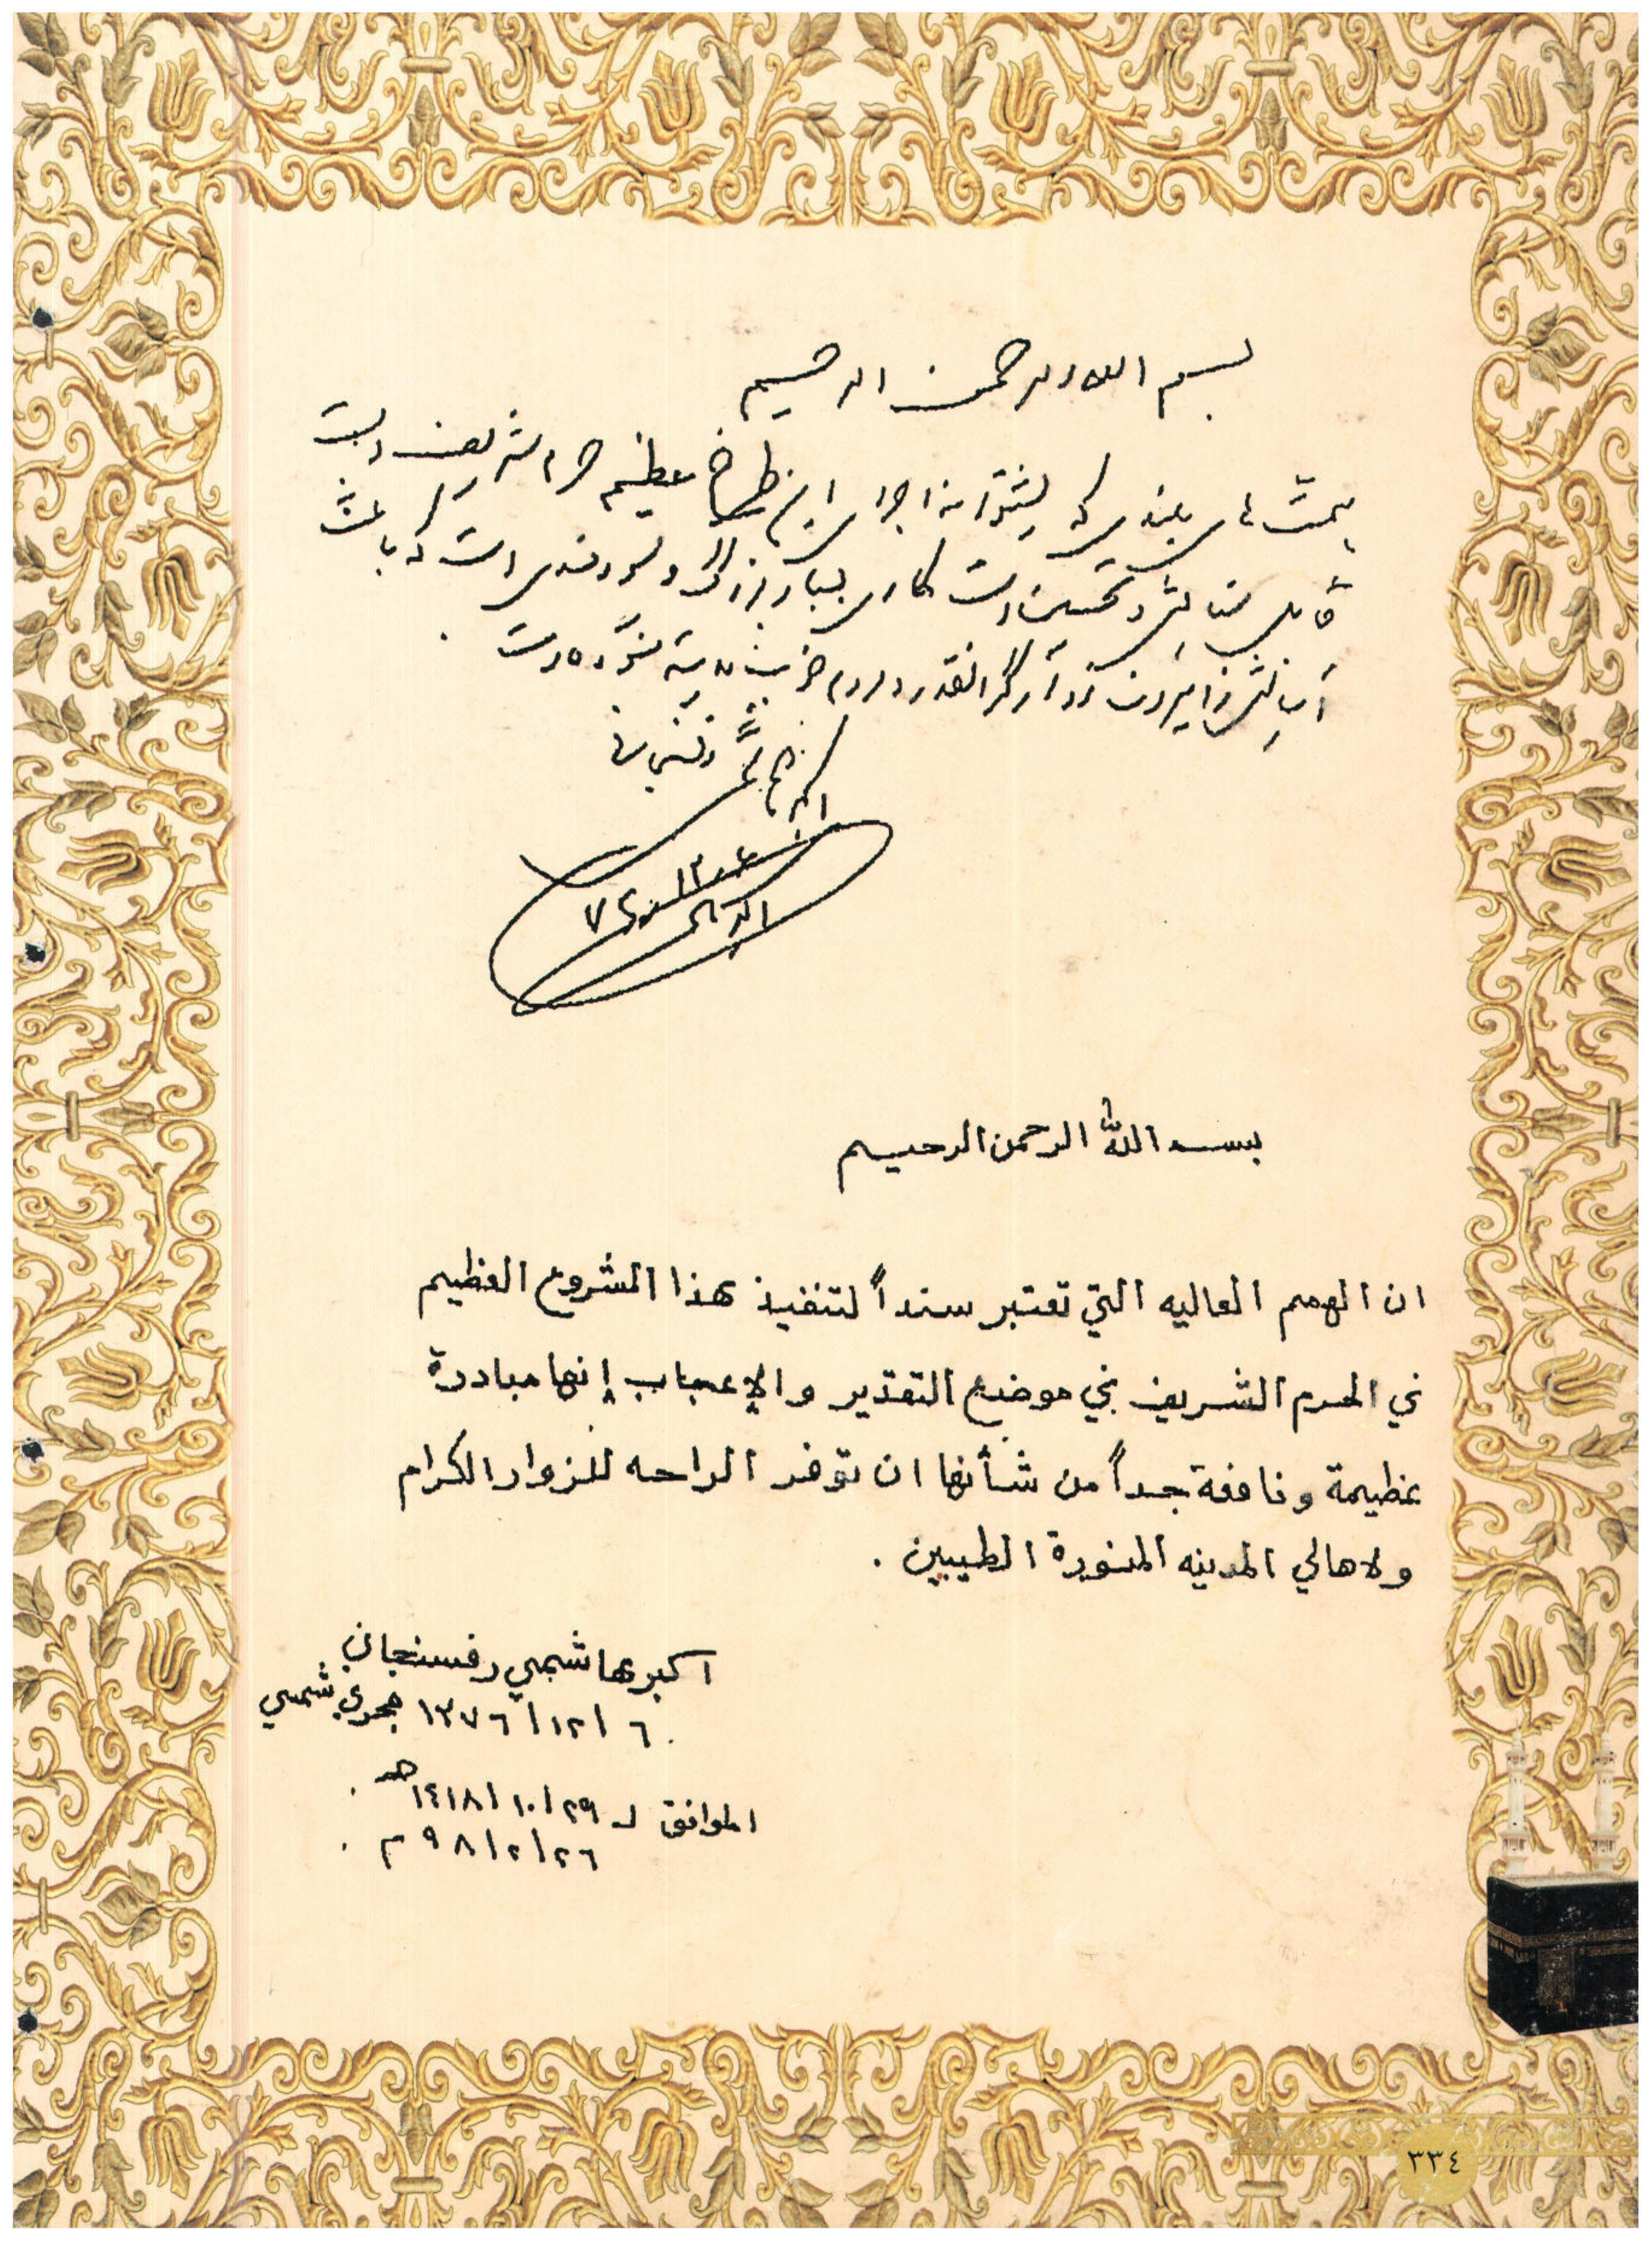 بسم الله الرحمن الرحيم
همت‌های بلندی که پشتوانه اجرای این طرح عظیم حرم شریف است
قابل ستایش و تحسین است کاری بسیار بزرگ و سودمندی است که باعث
آسایش زائران و مردم خوب مدینه منوره است .
اکبر هاشمی رفسنجانی
بسم الله الرحمن الرحيم
ان الهمم العاليه التي تعتبر سنداً لتنفيذ هذا المشروع العظيم
في الحرم الشريف في موضع التقدير والإعجاب إنها مبادرة
عظيمة ونافعة جداً من شأنها ان توفر الراحه للزوار الكرام
ولاهالي المدينه المنورة الطيبين .
اكبر هاشمي رفسنجاني
٦ / ١٢ / ١٣٧٦ هجري شمسي
الموافق لـ ٢٩ / ١٠ / ١٤١٨ هـ .
٢٦ / ٢ / ٩٨ م .
٣٣٤